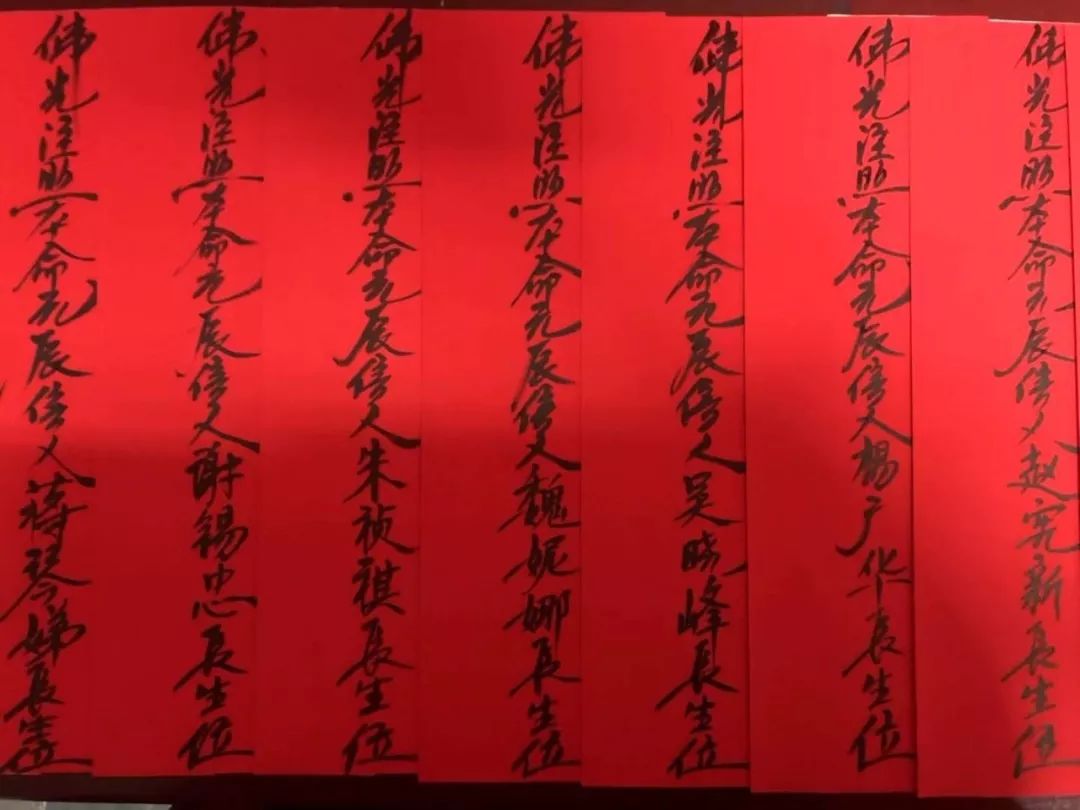 佛光注照本命元辰信人赵宪新长生位
佛光注照本命元辰信人杨广华长生位
佛光注照本命元辰信人吴晓峰长生位
佛光注照本命元辰信人魏妮娜长生位
佛光注照本命元辰信人朱祯祺长生位
佛光注照本命元辰信人谢锡忠长生位
佛光注照本命元辰信人蒋琴娣长生位